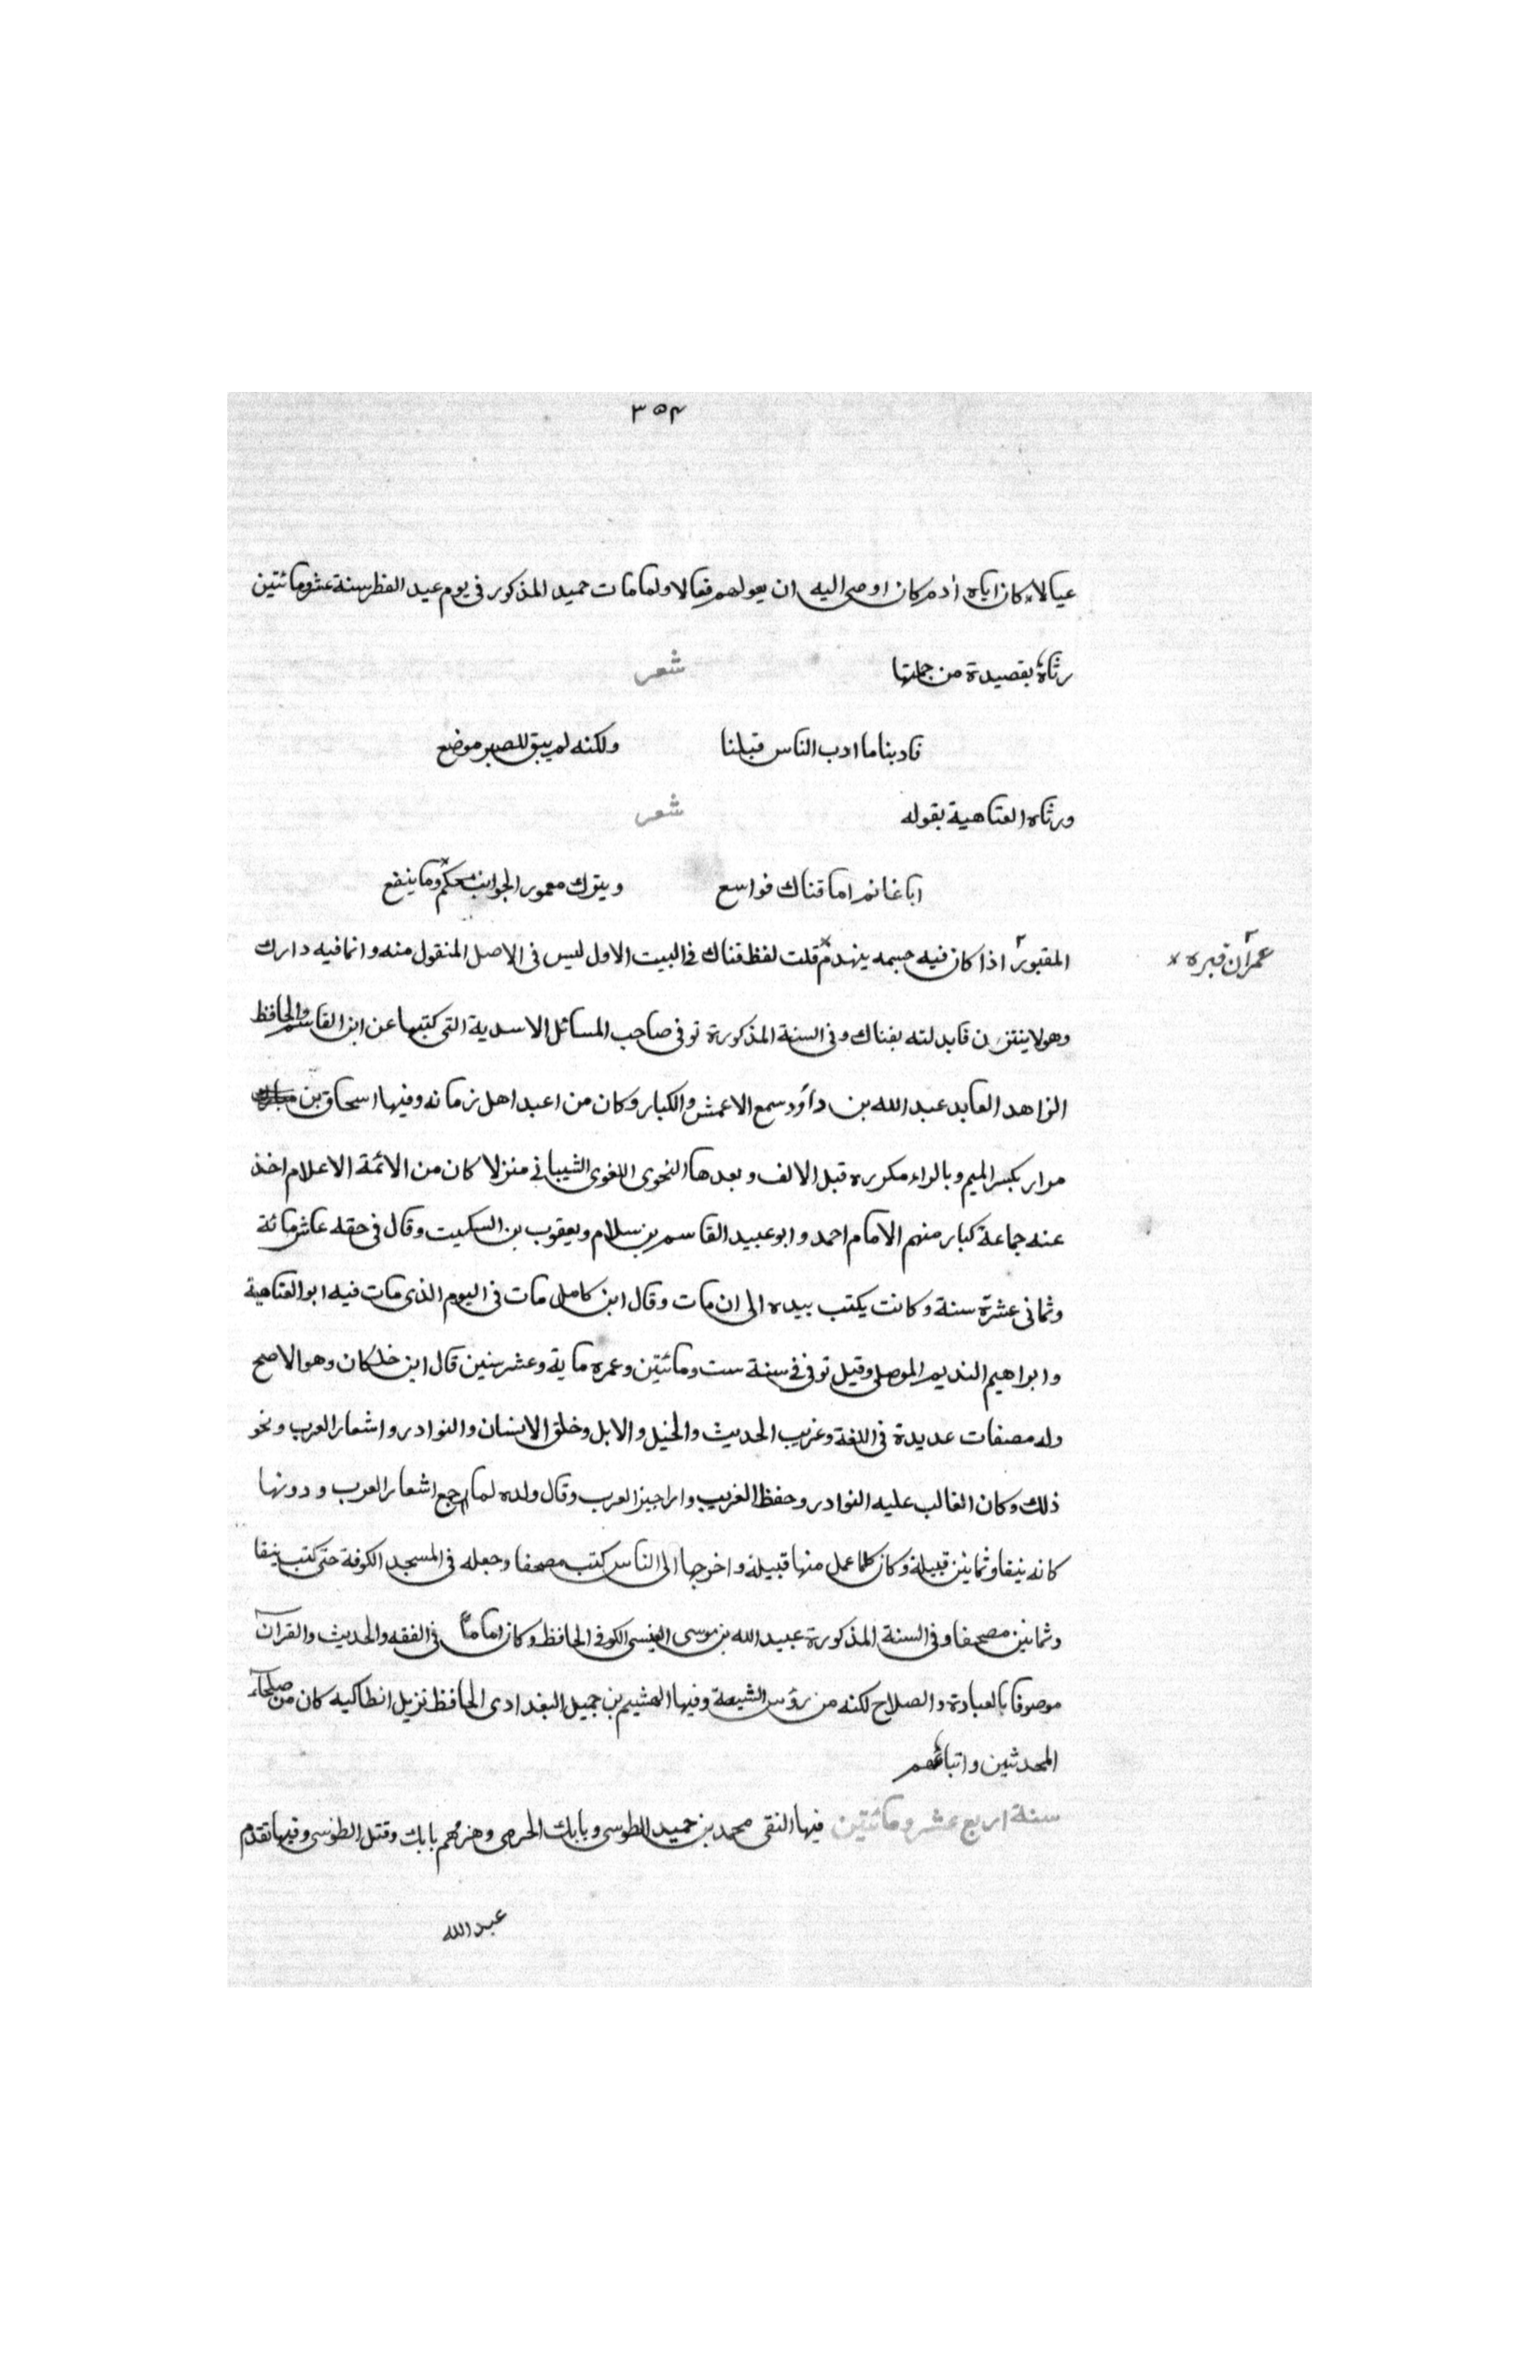 ٣٥٤
عيالا كان اباه ادم كان اوصى اليه ان يعولهم فعالا ولما مات حميد المذكور فى يوم عيد الفطر سنة عشر ومائتين
رثاه بقصيدة من جملتها شعر
فادبنا ما ادب الناس قبلنا ولكنه لم يبق للصبر موضع
ورثاه العتاهية بقوله شعر
ابا غانم اما قناك فواسع ويترك معمور الجوانب محكم وما ينفع
المقبور اذا كان فيه جسمه ينهدم قلت لفظ قناك فى البيت الاول ليس فى الاصل المنقول منه وانما فيه دارك
عمران قبره
وهو لا ينتزن فابدلته بفناك وفى السنة المذكورة توفى صاحب المسائل الاسدية التى كتبها عن ابن القاسم والحافظ
الزاهد العابد عبد الله بن داود سمع الاعمش والكبار وكان من اعبد اهل زمانه وفيها اسحاق بن
مرار بكسر الميم وبالراء مكرره قبل الالف وبعدها النحوى اللغوى الشيبانى منزلا كان من الائمة الاعلام اخذ
عنه جماعة كبار منهم الامام احمد وابو عبيد القاسم بن سلام ويعقوب بن السكيت وقال فى حقه عاش مائة
وثمانى عشرة سنة وكانت يكتب بيده الى ان مات وقال ابن كامل مات فى اليوم الذى مات فيه ابو العتاهية
وابراهيم النديم الموصلى وقيل توفى فى سنة ست ومائتين وعمره ماية وعشر سنين قال ابن خلكان وهو الاصح
وله مصنفات عديدة فى اللغة وغريب الحديث والخيل والابل وخلق الانسان والنوادر واشعار العرب ونحو
ذلك وكان الغالب عليه النوادر وحفظ الغريب واراجيز العرب وقال ولده لما جمع اشعار العرب ودونها
كانه نيفا وثمانين قبيلة وكان كلما عمل منها قبيلة واخرجها الى الناس كتب مصحفا وجعله فى المسجد الكوفة حتى كتب نيفا
وثمانين مصحفا وفى السنة المذكورة عبيد الله بن موسى العبسى الكوفى الحافظ وكان اماما فى الفقه والحديث والقرآن
موصوفا بالعبادة والصلاح لكنه من رؤس الشيعة وفيها الهشيم بن جميل البغدادى الحافظ نزيل انطاكيه كان من صلحاء
المحدثين واتباعهم
سنة اربع عشر ومائتين فيها التقى محمد بن حميد الطوسى وبابك الخرمى وهزمهم بابك وقتل الطوسى وفيها تقدم
عبد الله